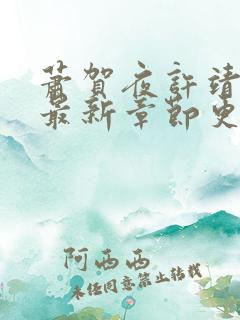 萧贺夜许靖
最新章节免
阿西西
未经同意禁止转载